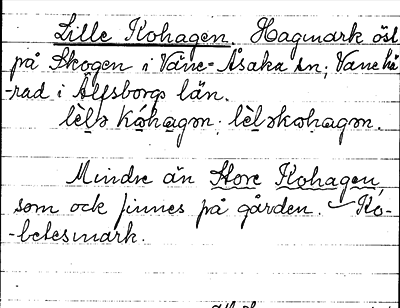 Lille Kohagen. Hagmark öst
på Skogen i Väne-Åsaka sn; Väne hä
-rad i Älfsborgs län.
Mindre än Store Kohagen,
som ock finnes på gården. Ko-
-betesmark.